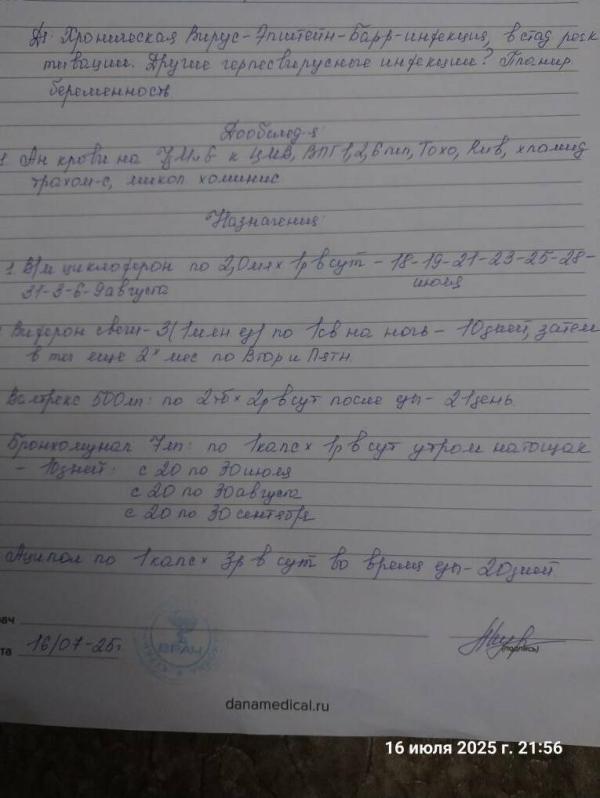 Дз: Хроническая Вирус-Эпштейн-Барр-инфекция, в стад реак
тивации. Другие герпесвирусные инфекции? Планир
беременность
Дообслед-я:
1 Ан крови на к ЦМВ, ВПГ 1,2,6 тип, Токо, хламид
трахом-с, микоп хоминис
Назначения:
1. В/м циклоферон по 2,0 мл × 1р в сут - 18-19-21-23-25-28-
31-3-6-9 августа июля
Виферон свечи-3 (1 млн ед) по 1св на ночь - 10дней, затем
в теч еще 2х мес по Втор и Пятн.
Валтрекс 500мг: по 2тб × 2р в сут после еды - 21 день
Бронхомунал 7мг: по 1капс × 1р в сут утром натощак
- 10дней: с 20 по 30 июля
с 20 по 30 августа
с 20 по 30 сентября
Аципол по 1капс × 3р в сут во время еды - 20дней
рач
ВРАЧ
та 16/07-25г
(подпись)
danamedical.ru
16 июля 2025 г. 21:56